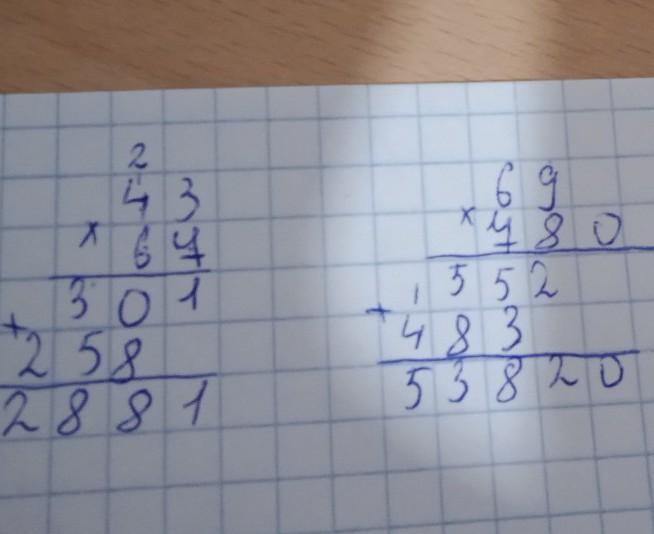 2
43
× 67
301
+
258
2881
69
× 780
1
552
+
483
53820